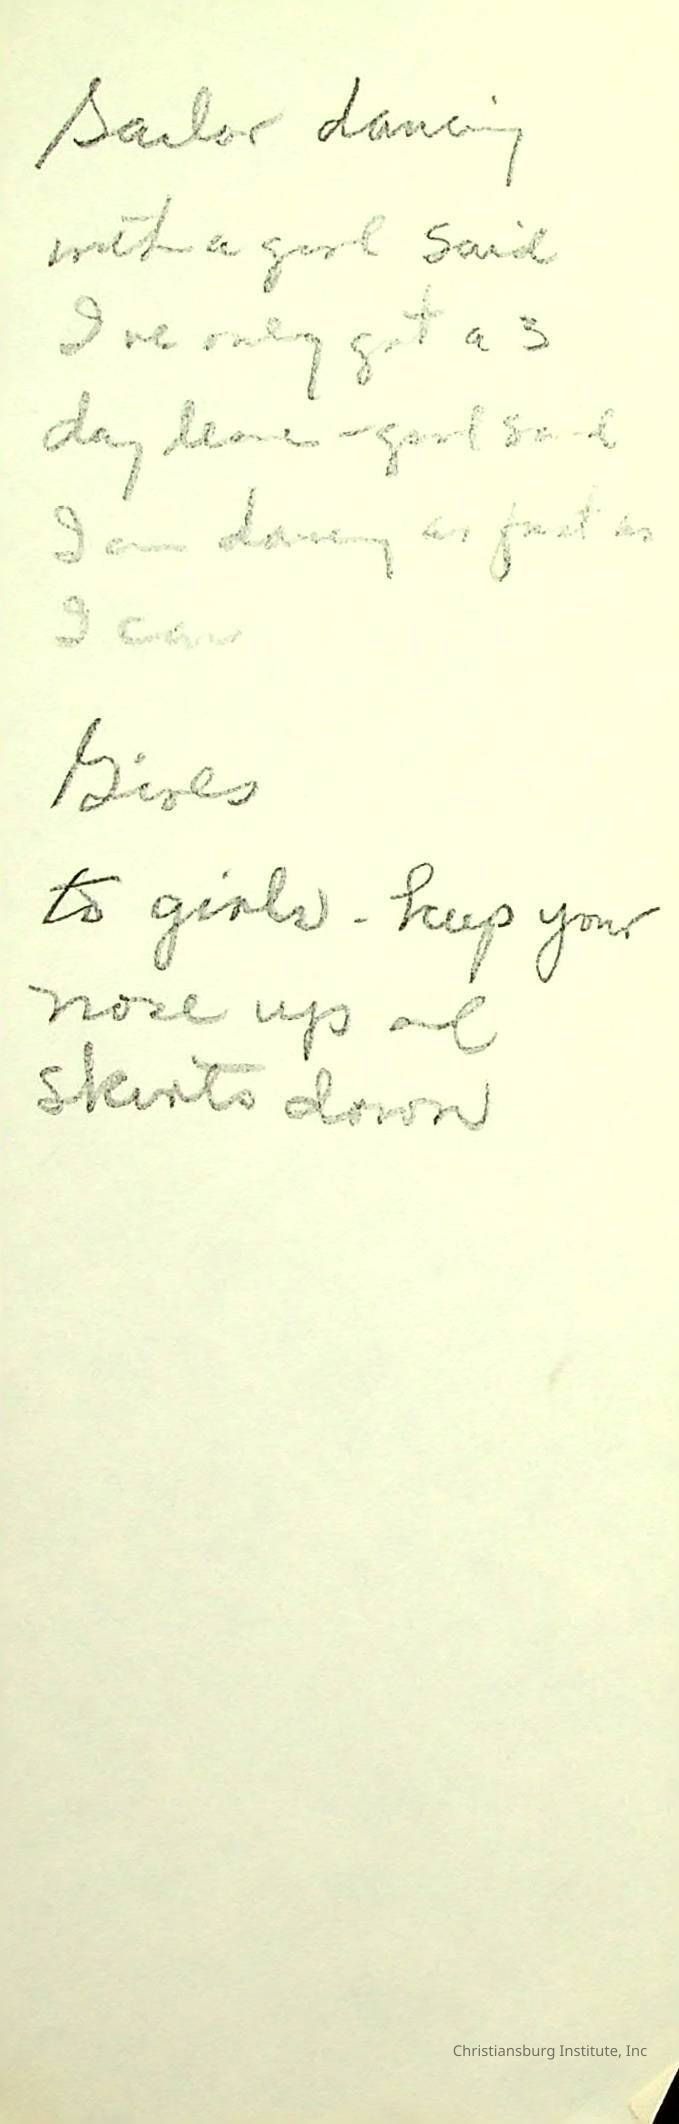 Sailor dancing
with a girl said
I've only got a 3
day leave - girl said
I am dancing as fast as
I can
Girls
to girls - keep your
nose up and
skirts down
Christiansburg Institute, Inc